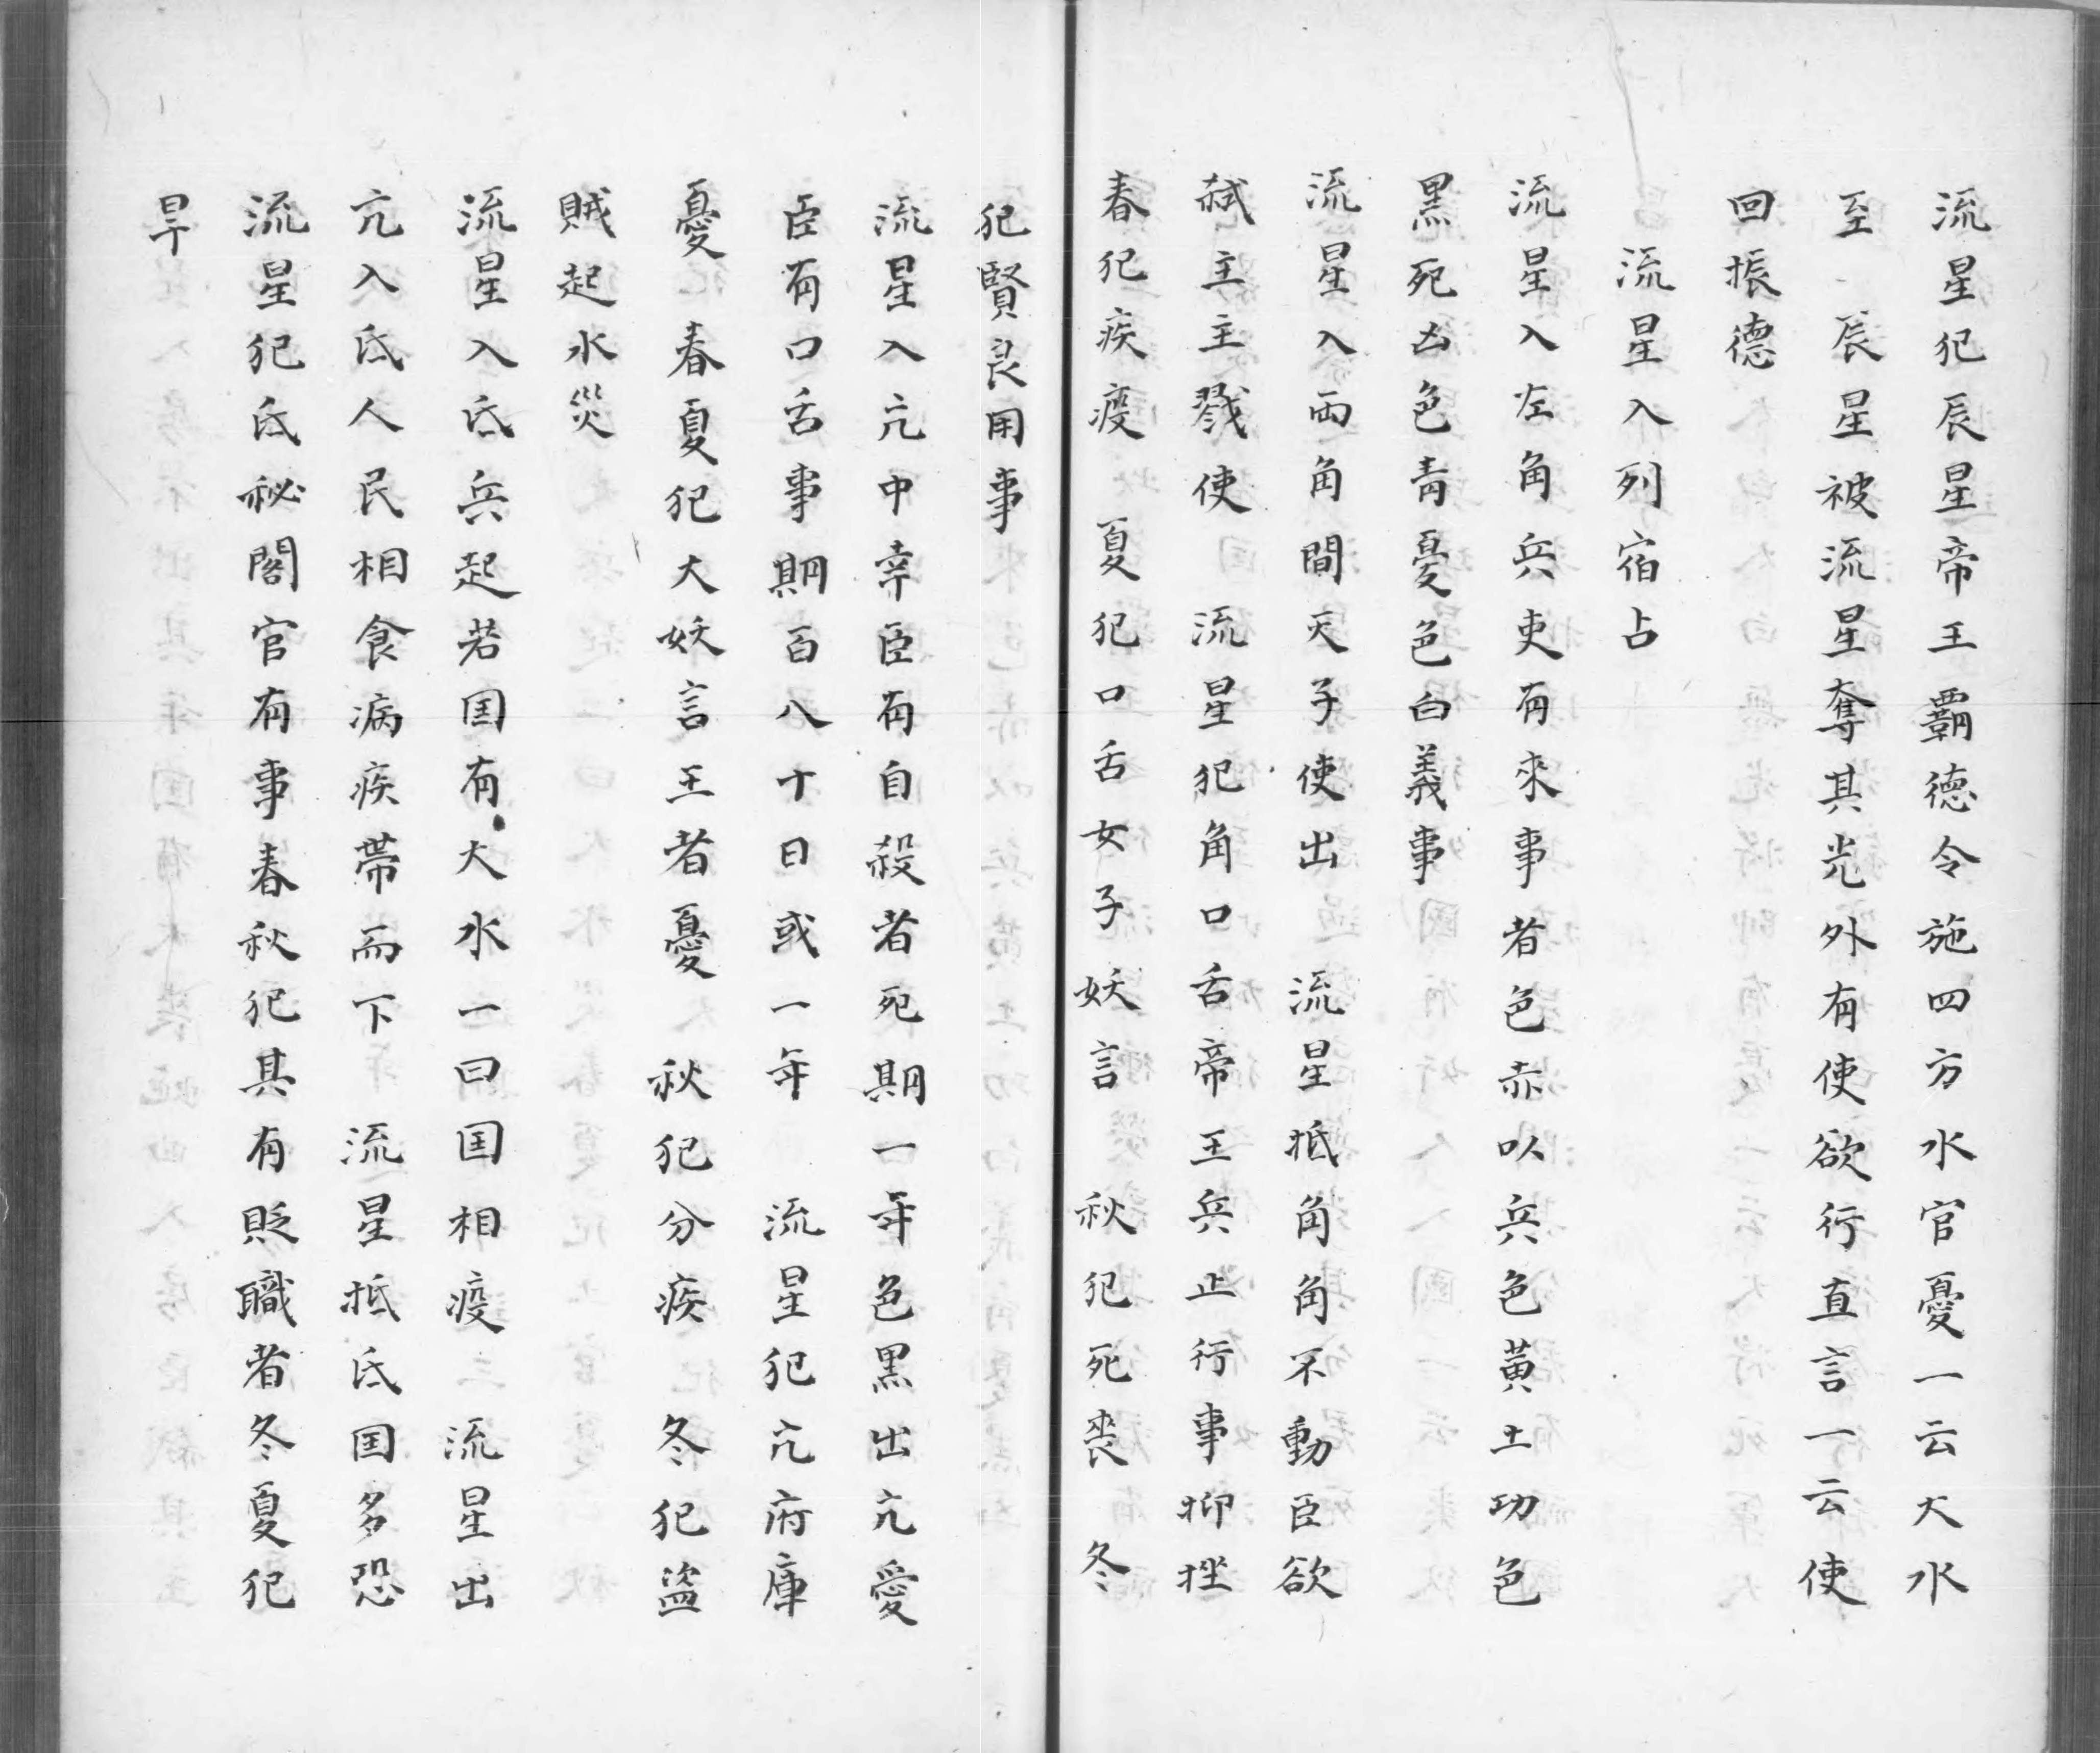 流星犯辰星帝王覇德令施四方水官憂一云大水
至　辰星被流星奪其光外有使欲行直言一云使
回振德
流星入列宿占
流星入左角兵吏有來事者色赤以兵色黃土功色
黑死凶色青憂色白義事
流星入兩角間天子使出　流星抵角角不動臣欲
弑主主戮使　流星犯角口舌帝王兵止行事抑挫
春犯疾疫　夏犯口舌女子妖言　秋犯死喪　冬
犯賢良用事
流星入亢中幸臣有自殺者死期一年色黑出亢愛
臣有口舌事期百八十日或一年　流星犯亢府庫
憂　春夏犯大妖言王者憂　秋犯分疾　冬犯盜
賊起水災
流星入氐兵起若国有大水一曰国相疫　流星出
亢入氐人民相食病疾帶而下　流星抵氐国多恐
流星犯氐秘閣官有事春秋犯其有貶職者冬夏犯
旱